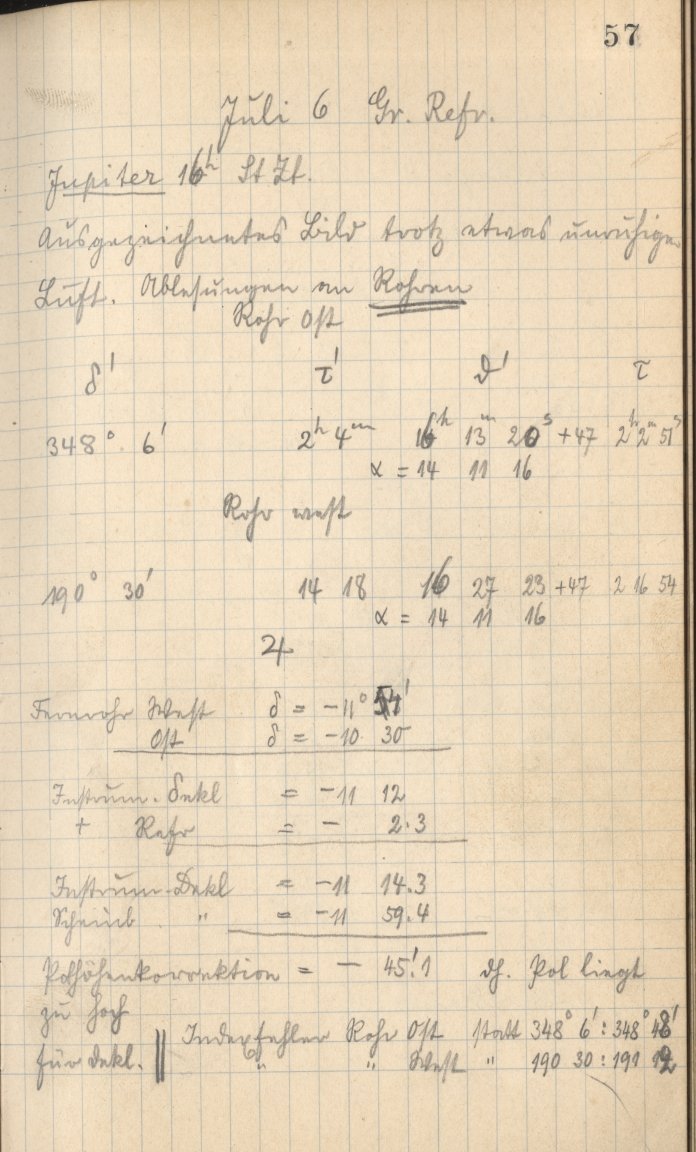 57
Juli 6 Gr. Refr.
Jupiter 16ʰ St Zt.
Ausgezeichnetes Bild trotz etwas unruhiger
Luft. Ablesungen an Rohren
Rohr Ost
δ' τ' ϑ' τ
348° 6' 2ʰ 4ᵐ 16ʰ 13ᵐ 20ˢ +47 2ʰ 2ᵐ 51ˢ
α = 14 11 16
Rohr west
190° 30' 14 18 16 27 23 +47 2 16 54
α = 14 11 16
♃
Fernrohr West δ = −11° 54'
Ost δ = −10 30
Instrum. Dekl = −11 12
+ Refr = − 2.3
Instrum. Dekl = −11 14.3
Scheinb. " = −11 59.4
Polhöhenkorrektion = − 45'.1 dh. Pol liegt
zu hoch
für Dekl. || Indexfehler Rohr Ost statt 348° 6' : 348° 48'
" " West " 190 30 : 191 12